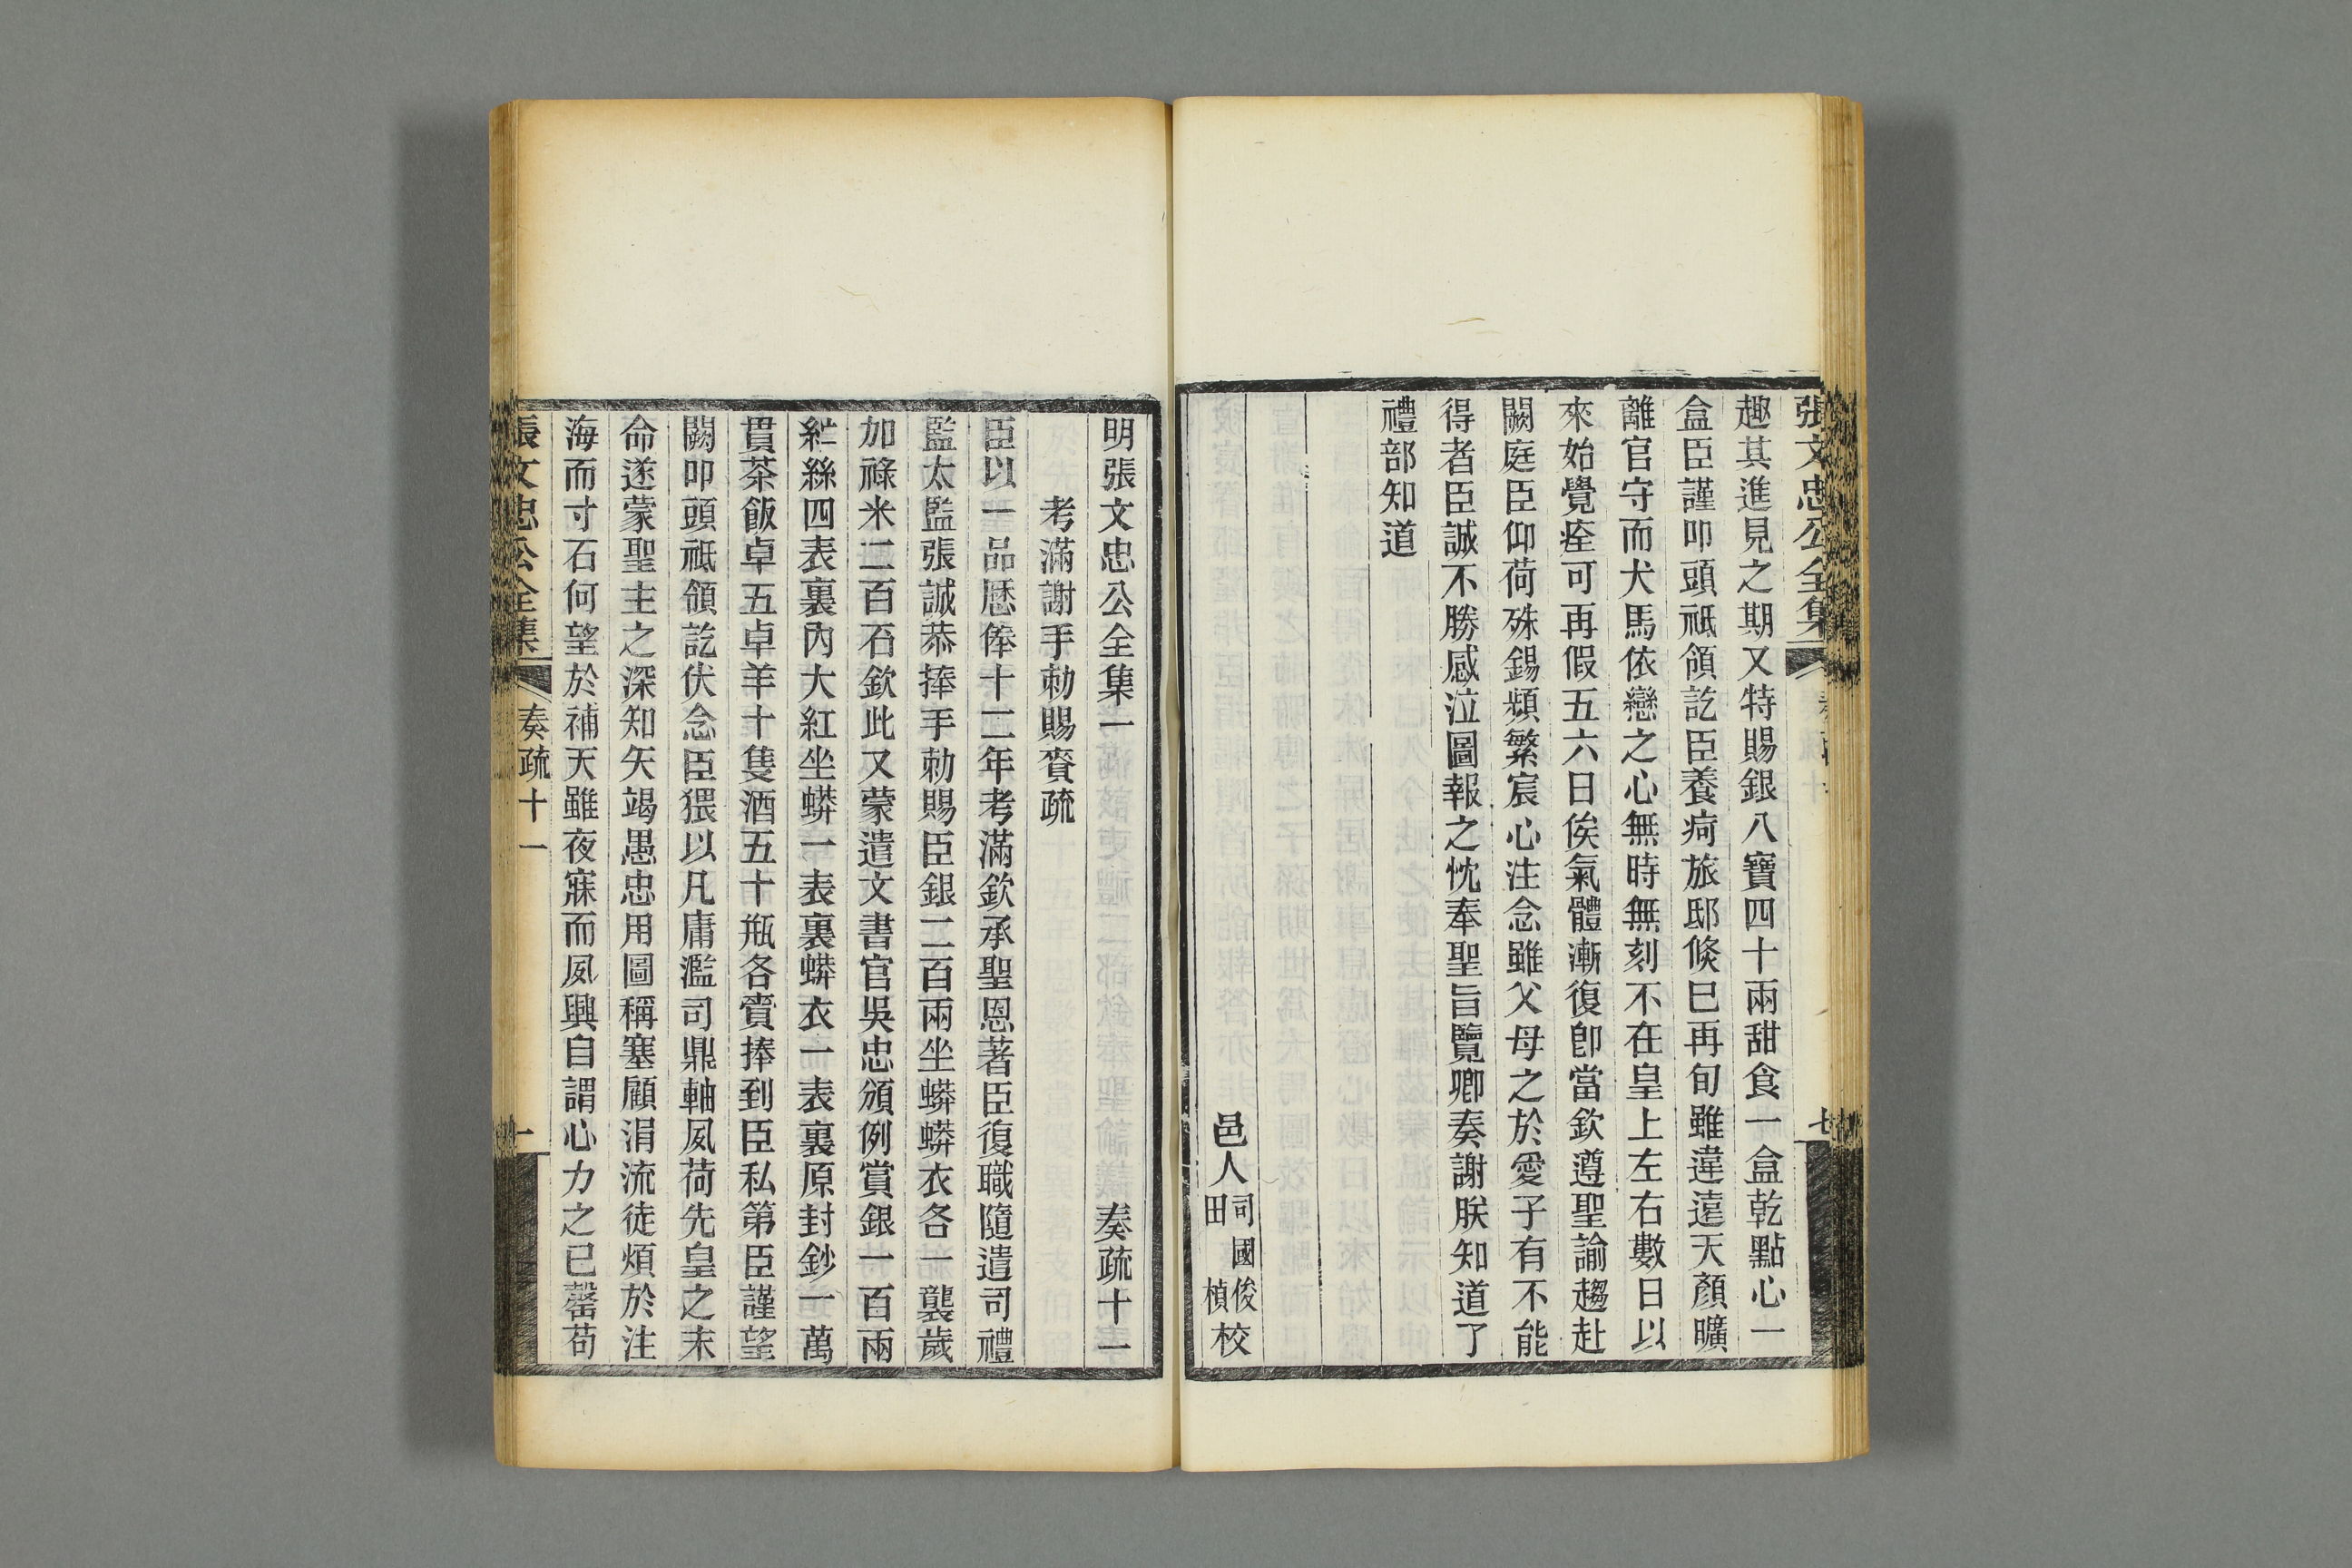 張文忠公全集
七
趣其進見之期又特賜銀八寶四十兩甜食一盒乾點心一
盒臣謹叩頭祗領訖臣養疴旅邸倏巳再旬雖違遠天顏曠
離官守而犬馬依戀之心無時無刻不在皇上左右數日以
來始覺痊可再假五六日俟氣體漸復卽當欽遵聖諭趨赴
闕庭臣仰荷殊錫頻繁宸心注念雖父母之於愛子有不能
得者臣誠不勝感泣圖報之忱奉聖旨覽卿奏謝朕知道了
禮部知道
邑人司國俊田楨校
明張文忠公全集一 奏疏十一
考滿謝手勅賜賚疏
臣以一品歷俸十二年考滿欽承聖恩著臣復職隨遣司禮
監太監張誠恭捧手勅賜臣銀二百兩坐蟒蟒衣各一襲歲
加祿米二百石欽此又蒙遣文書官吳忠頒例賞銀一百兩
紵絲四表裏內大紅坐蟒一表裏蟒衣一表裏原封鈔一萬
貫茶飯卓五卓羊十隻酒五十瓶各賫捧到臣私第臣謹望
闕叩頭祗領訖伏念臣猥以凡庸濫司鼎軸夙荷先皇之末
命遂蒙聖主之深知矢竭愚忠用圖稱塞顧涓流徒煩於注
海而寸石何望於補天雖夜寐而夙興自謂心力之已罄苟
張文忠公全集 奏疏十一 一